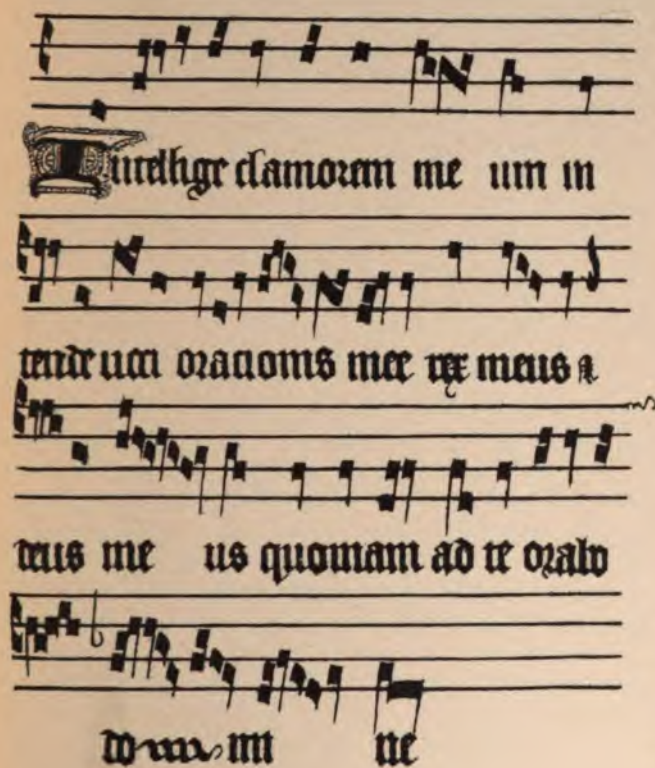 Intellige clamorem me um in
tende uoci oracionis mee rex meus &
deus me us quoniam ad te orabo
do mi ne